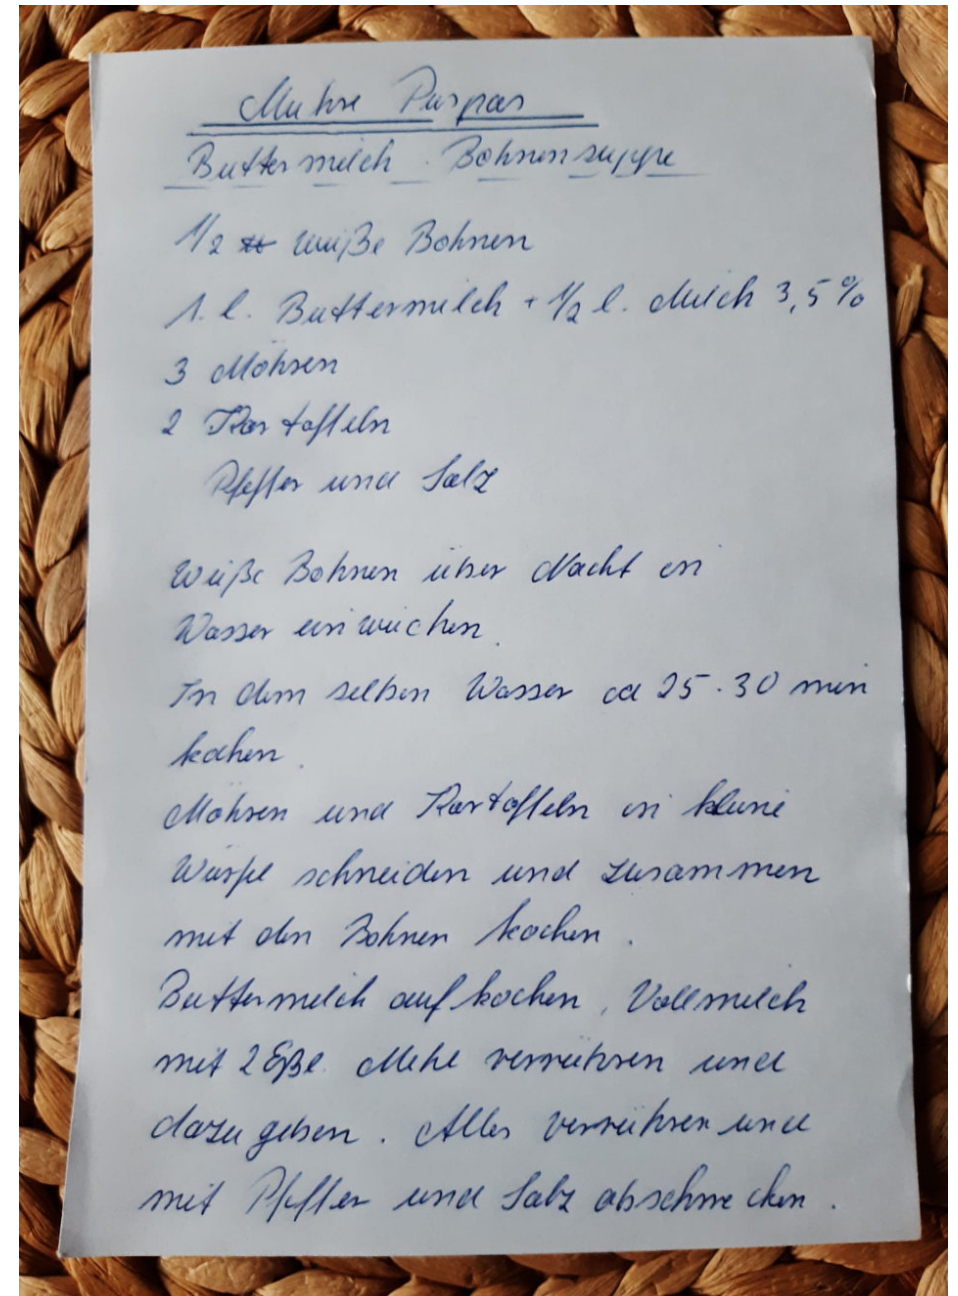 Muhre Puspas
Buttermilch - Bohnensuppe
1/2 ℔ weiße Bohnen
1. l. Buttermilch + 1/2 l. Milch 3,5%
3 Möhren
2 Kartoffeln
Pfeffer und Salz
Weiße Bohnen über Nacht in
Wasser einweichen.
In dem selben Wasser ca 25-30 min
kochen.
Möhren und Kartoffeln in kleine
Würfel schneiden und zusammen
mit den Bohnen kochen.
Buttermilch aufkochen, Vollmilch
mit 2 Eßl. Mehl verrühren und
dazu geben. Alles verrühren und
mit Pfeffer und Salz abschmecken.